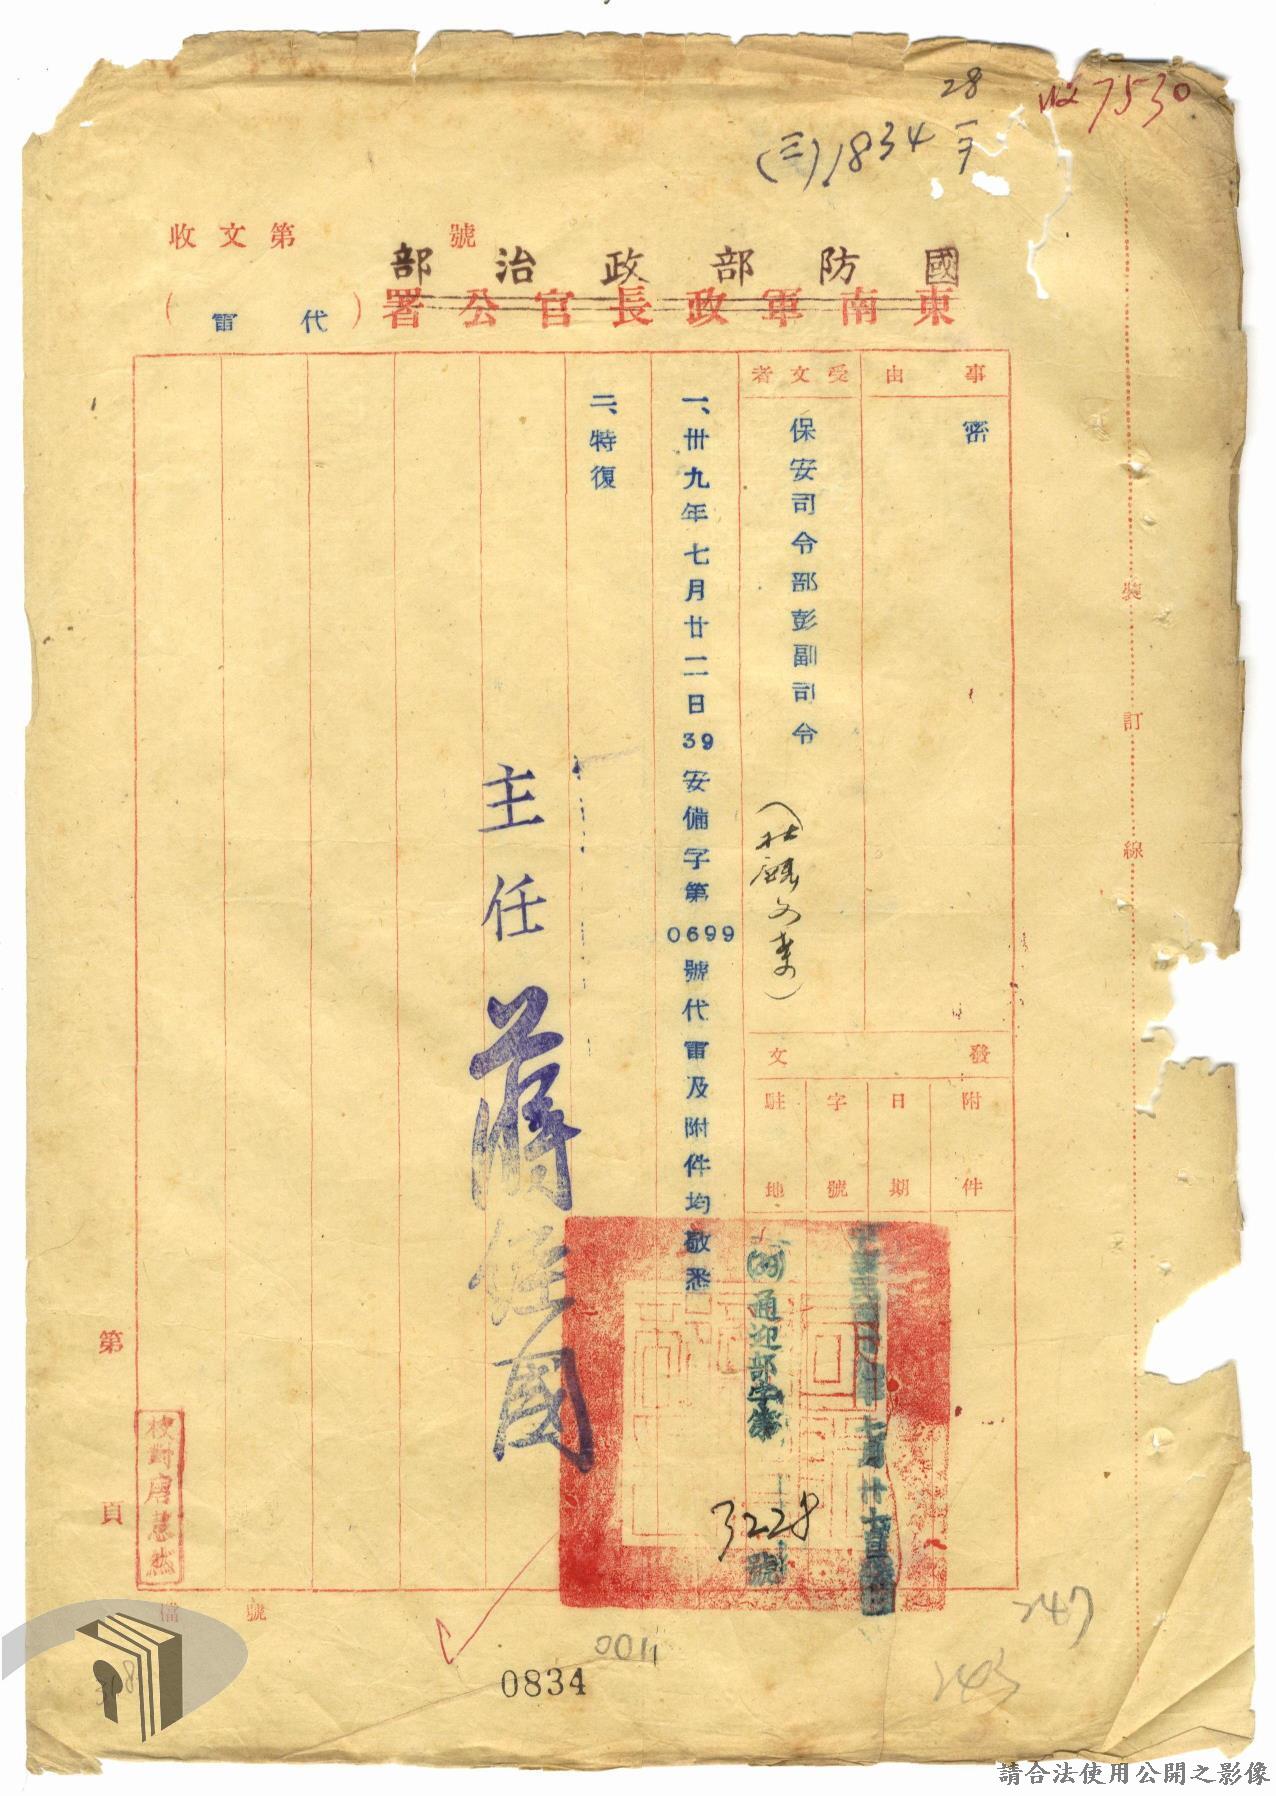 28
7530
(三)1834
收文第 號
國防部政治部
東南軍政長官公署
(代電)
事由
密
受文者
保安司令部彭副司令
發文
附件
日期
字號
駐地
七月廿七日
(39)通迎部字第
3228
號
一、卅九年七月廿二日39安備字第0699號代電及附件均敬悉
二、特復
主任 蔣經國
裝訂線
第 頁
檔號
0011
0834
247
243
請合法使用公開之影像